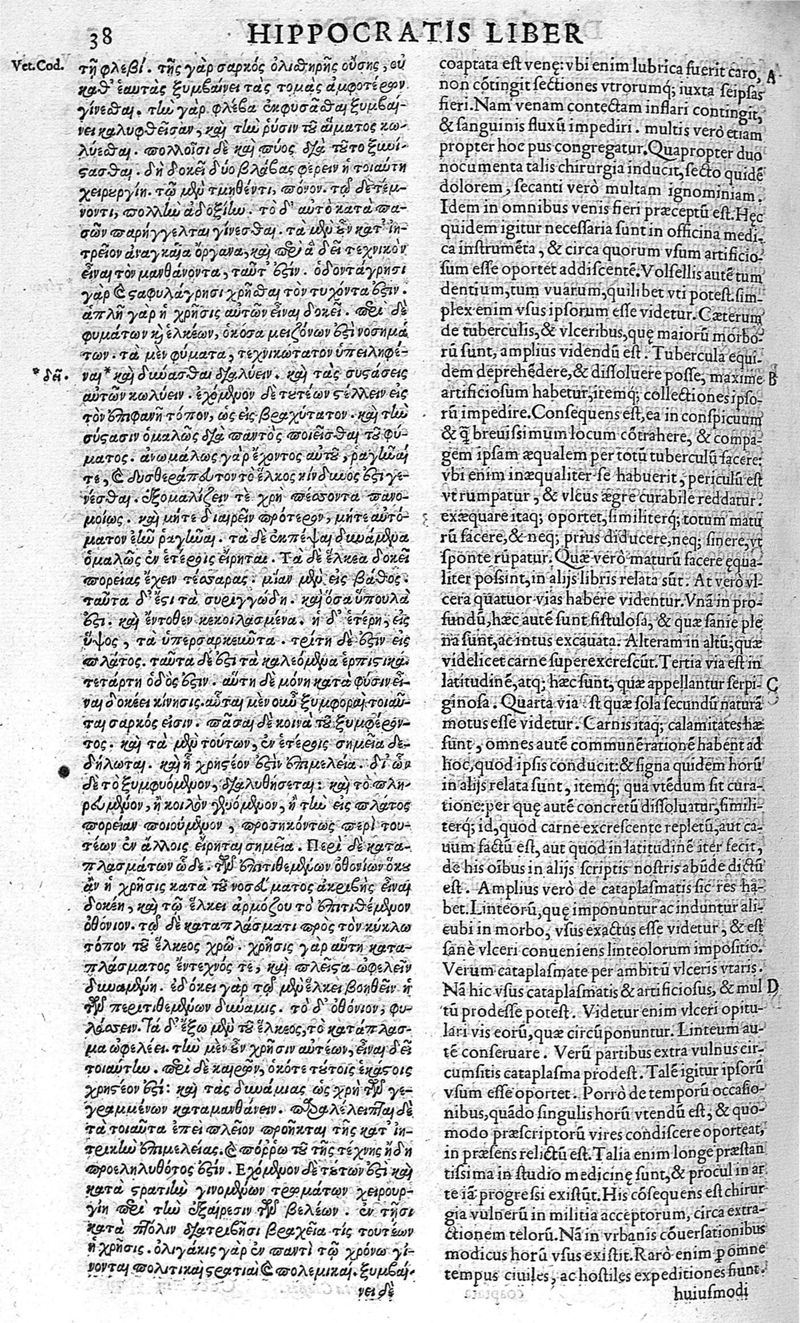 38 HIPPOCRATIS LIBER
Vet. Cod.
τῇ φλεβί. τῆς γὰρ σαρκὸς ὀλιθηρῆς οὔσης, οὐ
καθ' ἑαυτὰς ξυμβαίνει τὰς τομὰς ἀμφοτέρων
γίνεσθαι. τὴν γὰρ φλέβα ἐκφυσᾶσθαι ξυμβαί-
νει καλυφθεῖσαν, καὶ τὴν ῥύσιν τοῦ αἵματος κω-
λύεσθαι. πολλοῖσι δὲ καὶ πύος διὰ τοῦτο ξυνί-
στασθαι. δὴ δοκεῖ δύο βλάβας φέρειν ἡ τοιαύτη
χειρεργίη. τῷ μὲν τμηθέντι, πόνον. τῷ δὲ τέμ-
νοντι, πολλὴν ἀδοξίην. τὸ δ' αὐτὸ κατὰ πα-
σῶν παρήγγελται γίνεσθαι. τὰ μὲν οὖν κατ' ἰη-
τρεῖον ἀναγκαῖα ὄργανα, καὶ περὶ ἃ δεῖ τεχνικὸν
εἶναι τὸν μανθάνοντα, ταῦτ' ἐστίν. ὀδοντάγρησι
γὰρ καὶ σταφυλάγρησι χρῆσθαι τὸν τυχόντα ἐστίν.
ἁπλῆ γὰρ ἡ χρῆσις αὐτῶν εἶναι δοκεῖ. περὶ δὲ
φυμάτων καὶ ἑλκέων, ὁκόσα μειζόνων ἐστὶ νοσημά
των. τὰ μὲν φύματα, τεχνικώτατον ὑπειληφέ-
*δεῖ.
ναι* καὶ δύνασθαι διαλύειν. καὶ τὰς συστάσεις
αὐτῶν κωλύειν. ἐχόμενον δὲ τουτέων στέλλειν εἰς
τὸν ἐπιφανῆ τόπον, ὡς εἰς βραχύτατον. καὶ τὴν
σύστασιν ὁμαλῶς διὰ παντὸς ποιεῖσθαι τοῦ φύ-
ματος. ἀνωμάλως γὰρ ἔχοντος αὐτοῦ, ῥαγῆναί
τε, καὶ δυσθεράπευτον τὸ ἕλκος κίνδυνός ἐστι γε-
νέσθαι. ἐξομαλίζειν τε χρὴ πέσσοντα πανο-
μοίως. καὶ μήτε διαιρεῖν πρότερον, μήτε αὐτό-
ματον ἐᾶν ῥαγῆναι. τὰ δὲ ἐκπέψαι δυνάμενα
ὁμαλῶς ἐν ἑτέροις εἴρηται. Τὰ δὲ ἕλκεα δοκεῖ
πορείας ἔχειν τέσσαρας. μίαν μὲν εἰς βάθος.
ταῦτα δ' ἔστι τὰ συριγγώδη. καὶ ὅσα ὕπουλά
ἐστι. καὶ ἔντοθεν κεκοιλασμένα. ἡ δ' ἑτέρη, εἰς
ὕψος, τὰ ὑπερσαρκεῦντα. τρίτη δέ ἐστιν εἰς
πλάτος. ταῦτα δέ ἐστι τὰ καλεόμενα ἑρπιστικά.
τετάρτη ὁδός ἐστιν. αὕτη δὲ μόνη κατὰ φύσιν εἶ-
ναι δοκέει κίνησις. αὗται μὲν οὖν ξυμφοραὶ τοιαῦ-
ται σαρκός εἰσιν. πᾶσαι δὲ κοιναὶ τοῦ ξυμφέρον-
τος. καὶ τὰ μὲν τούτων, ἐν ἑτέροις σημεῖα δε-
δήλωται. καὶ ᾗ χρηστέον ἐστὶν ἐπιμελείᾳ. δι' ὧν
δὲ τὸ ξυμφυόμενον, διαλυθήσεται: καὶ τὸ πλη-
ρούμενον, ἢ κοῖλον γενόμενον, ἢ τὴν εἰς πλάτος
πορείαν ποιούμενον, προσηκόντως περὶ του-
τέων ἐν ἄλλοις εἴρηται σημεῖα. Περὶ δὲ κατα-
πλασμάτων ὧδε. τῶν ἐπιτιθεμένων ὀθονίων ὅκου
ἂν ἡ χρῆσις κατὰ τοῦ νοσεύματος ἀκριβὴς εἶναι
δοκέῃ, καὶ τῷ ἕλκει ἁρμόζον τὸ ἐπιτιθέμενον
ὀθόνιον. τῷ δὲ καταπλάσματι πρὸς τὸν κύκλῳ
τόπον τοῦ ἕλκεος χρῶ. χρῆσις γὰρ αὕτη κατα-
πλάσματος ἔντεχνός τε, καὶ πλεῖστα ὠφελεῖν
δυναμένη. ἐδόκει γὰρ τῷ μὲν ἕλκει βοηθεῖν ἡ
τῶν περιτιθεμένων δύναμις. τὸ δ' ὀθόνιον, φυ-
λάσσειν. Τὰ δ' ἔξω μὲν τοῦ ἕλκεος, τὸ κατάπλασ-
μα ὠφελέει. τὴν μὲν οὖν χρῆσιν αὐτέων, εἶναι δεῖ
τοιαύτην. περὶ δὲ καιρῶν, ὁκότε τούτοις ἑκάστοις
χρηστέον ἐστί: καὶ τὰς δυνάμιας ὡς χρὴ τῶν γε-
γραμμένων καταμανθάνειν. παραλέλειπται δὲ
τὰ τοιαῦτα ἐπεὶ πλεῖον προῆκται τῆς κατ' ἰη-
τρικὴν ἐπιμελείας. καὶ πόῤῥω τοῦ τῆς τέχνης ἤδη
προεληλυθότος ἐστίν. Ἐχόμενον δὲ τούτων ἐστὶ καὶ
κατὰ στρατιὴν γινομένων τρωμάτων χειρουρ-
γίη περὶ τὴν ἐξαίρεσιν τῶν βελέων. ἐν τῇσι
κατὰ πόλιν διατριβῇσι βραχεῖά τις τουτέων
ἡ χρῆσις. ὀλιγάκις γὰρ ἐν παντὶ τῷ χρόνῳ γί-
νονται πολιτικαὶ στρατιαὶ καὶ πολεμικαί. ξυμβαί-
νει δὲ
coaptata est venę: vbi enim lubrica fuerit caro, A
non cōtingit sectiones vtrorumq; iuxta seipsas
fieri. Nam venam contectam inflari contingit,
& sanguinis fluxū impediri. multis verò etiam
propter hoc pus congregatur. Quapropter duo
nocumenta talis chirurgia inducit, secto quidē
dolorem, secanti verò multam ignominiam.
Idem in omnibus venis fieri præceptū est. Hęc
quidem igitur necessaria sunt in officina medi-
ca instrumēta, & circa quorum vsum artificio-
sum esse oportet addiscentē. Volsellis autē tum
dentium, tum vuarum, quilibet vti potest. sim-
plex enim vsus ipsorum esse videtur. Cæterum
de tuberculis, & vlceribus, quę maiorū morbo-
rū sunt, amplius videndū est. Tubercula equi-
dem deprehēdere, & dissoluere posse, maxime B
artificiosum habetur, itemq; collectiones ipso-
rū impedire. Consequens est, ea in conspicuum
& q̃ breuissimum locum cōtrahere, & compa-
gem ipsam æqualem per totū tuberculū facere:
vbi enim inæqualiter se habuerit, periculū est
vt rumpatur, & vlcus ægre curabile reddatur.
exæquare itaq; oportet, similiterq; totum matu
rū facere, & neq; prius diducere, neq; sinere, vt
sponte rūpatur. Quæ verò maturū facere ęqua-
liter possint, in alijs libris relata sūt. At verò vl-
cera quatuor vias habere videntur. Vnā in pro-
fundū, hæc autē sunt fistulosa, & quæ sanie ple
na sunt, ac intus excauata. Alteram in altū; quæ
videlicet carne superexcrescūt. Tertia via est in
latitudinē, atq; hæc sunt, quæ appellantur serpi- C
ginosa. Quarta via est quæ sola secundū naturā
motus esse videtur. Carnis itaq; calamitates hæ
sunt, omnes autē communē rationē habent ad
hoc, quod ipsis conducit: & signa quidem horū
in alijs relata sunt, itemq; qua vtēdum sit cura-
tione: per quę autē concretū dissoluatur, simili-
terq; id, quod carne excrescente repletū, aut ca-
uum factū est, aut quod in latitudinē iter fecit,
de his oībus in alijs scriptis nostris abūde dictū
est. Amplius verò de cataplasmatis sic res ha-
bet. Linteorū, que imponuntur ac induntur ali-
cubi in morbo, vsus exactus esse videtur, & est
sanè vlceri conueniens linteolorum impositio.
Verum cataplasmate per ambitū vlceris vtaris.
Nā hic vsus cataplasmatis & artificiosus, & mul D
tū prodesse potest. Videtur enim vlceri opitu-
lari vis eorū, quæ circūponuntur. Linteum au-
tē conseruare. Verū partibus extra vulnus cir-
cumsitis cataplasma prodest. Talē igitur ipsorū
vsum esse oportet. Porrò de temporū occasio-
nibus, quādo singulis horū vtendū est, & quo-
modo præscriptorū vires condiscere oporteat,
in præsens relictū est. Talia enim longe præstan
tissima in studio medicinę sunt, & procul in ar
te iā progressi existūt. His cōsequens est chirur
gia vulnerū in militia acceptorum, circa extra-
ctionem telorū. Nā in vrbanis cōuersationibus
modicus horū vsus existit. Rarò enim ꝑ omne
tempus ciuiles, ac hostiles expeditiones fiunt.
huiusmodi